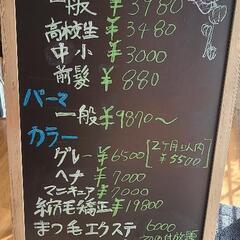 一般 ¥3980
高校生 ¥3480
中小 ¥3000
前髪 ¥880
パーマ
一般 ¥9870〜
カラー
グレー ¥6500 [2ヶ月以内 ¥5500]
ヘナ ¥7000
マニキュア ¥7000
縮毛矯正 ¥19800
まつ毛エクステ 6000